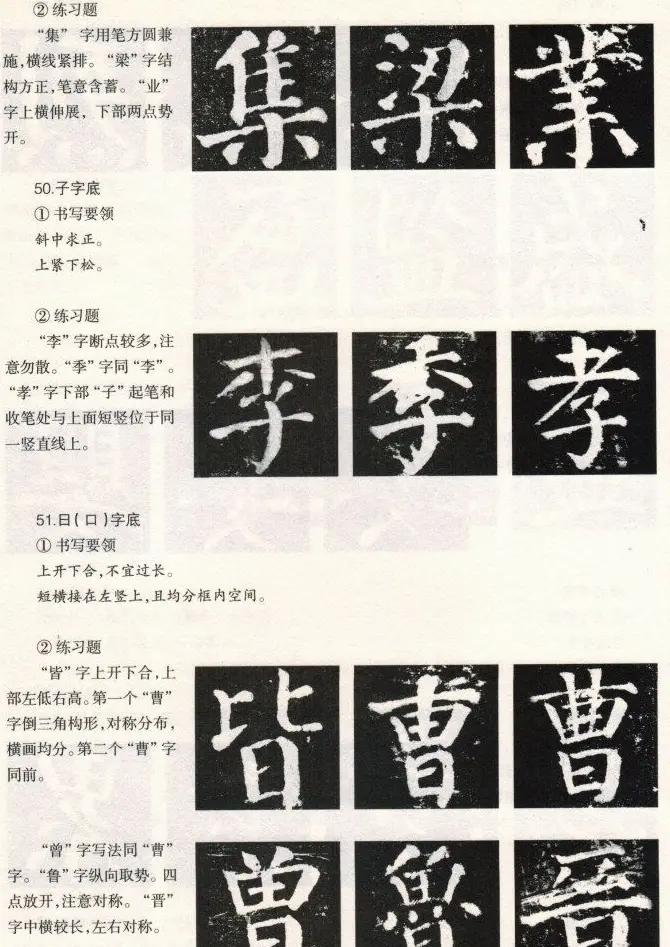 ② 练习题
“集” 字用笔方圆兼
施,横线紧排。“梁”字结
构方正,笔意含蓄。“业”
字上横伸展, 下部两点势
开。
集 梁 業
50.子字底
① 书写要领
斜中求正。
上紧下松。
② 练习题
“李”字断点较多,注
意勿散。“季”字同“李”。
“孝”字下部“子”起笔和
收笔处与上面短竖位于同
一竖直线上。
李 季 孝
51.曰( 口 )字底
① 书写要领
上开下合,不宜过长。
短横接在左竖上,且均分框内空间。
② 练习题
“皆”字上开下合,上
部左低右高。第一个“曹”
字倒三角构形,对称分布,
横画均分。第二个“曹”字
同前。
皆 曹 曹
“曾”字写法同“曹”
字。“鲁”字纵向取势。四
点放开,注意对称。“晋”
字中横较长,左右对称。
曾 魯 晉